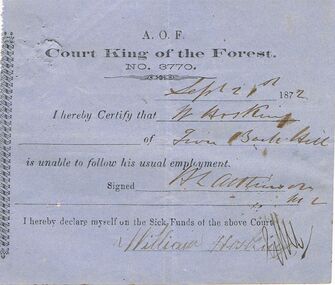 A. O. F.
Court King of the Forest.
NO. 3770.
Sept 21st 1872
I hereby Certify that W Hosking
of Iron Bark Hill
is unable to follow his usual employment.
Signed Atkinson
I hereby declare myself on the Sick Funds of the above Court,
William Hosking